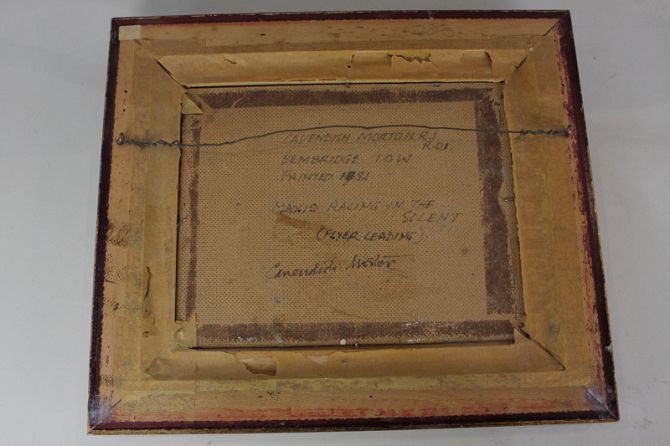 CAVENDISH MORTON R.I.
R.O.I
BEMBRIDGE IOW
PAINTED 1981
MAXIS RACING IN THE
SOLENT
(FLYER LEADING).
Cavendish Morton